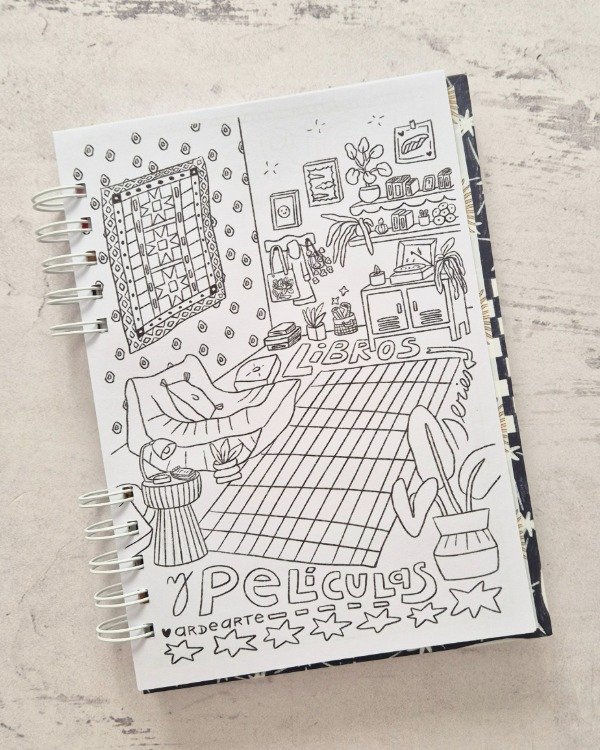 LiBROS
series
y PeLiCULaS
aRDeaRTe